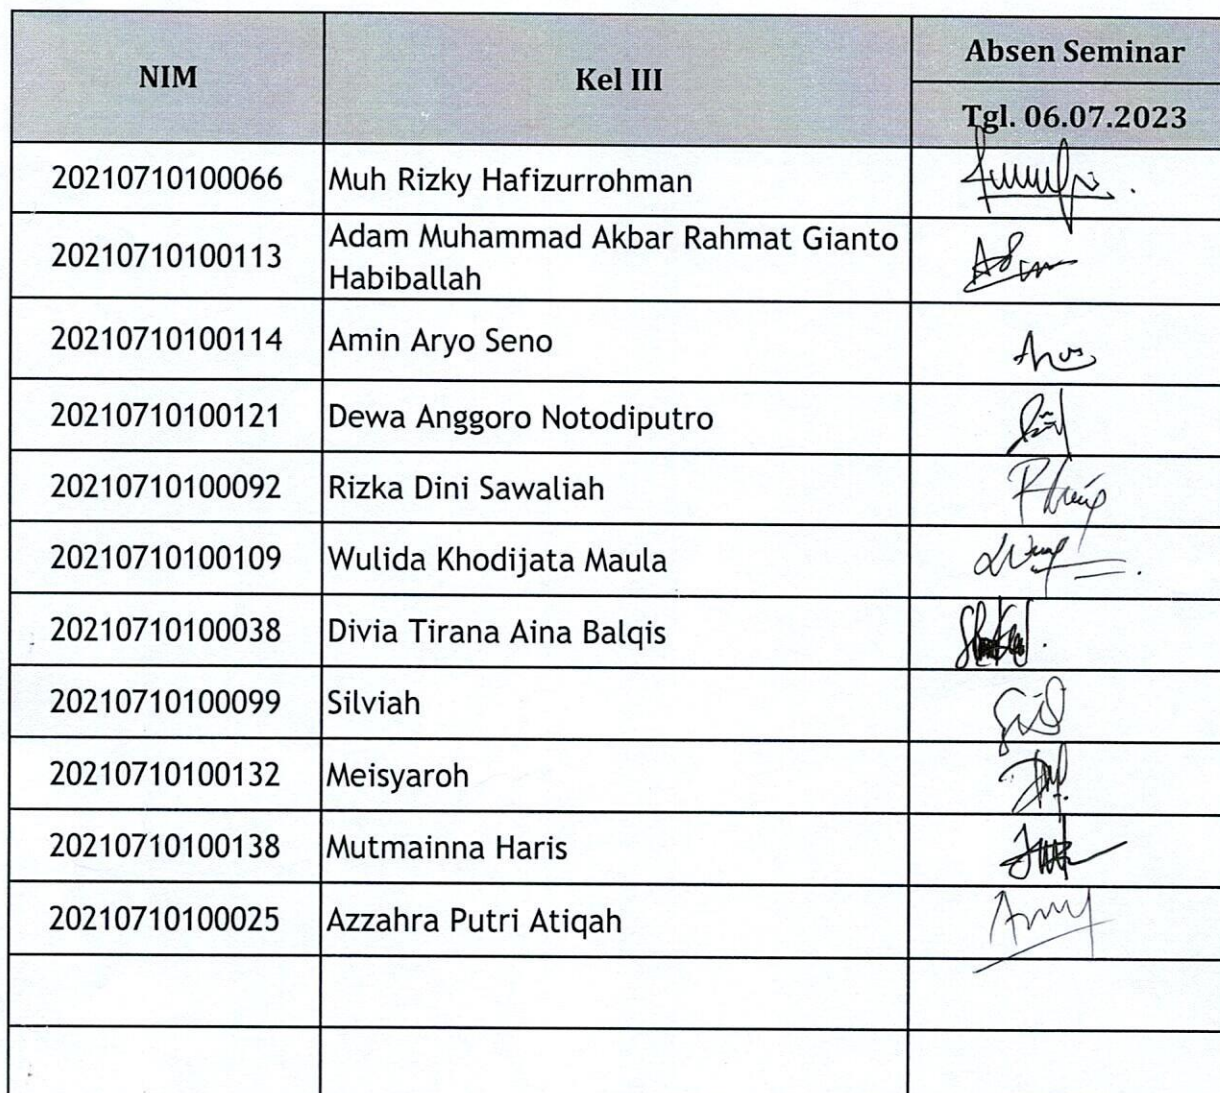 NIM Kel III Absen Seminar
Tgl. 06.07.2023
20210710100066 Muh Rizky Hafizurrohman
20210710100113 Adam Muhammad Akbar Rahmat Gianto
Habiballah
20210710100114 Amin Aryo Seno
20210710100121 Dewa Anggoro Notodiputro
20210710100092 Rizka Dini Sawaliah
20210710100109 Wulida Khodijata Maula
20210710100038 Divia Tirana Aina Balqis
20210710100099 Silviah
20210710100132 Meisyaroh
20210710100138 Mutmainna Haris
20210710100025 Azzahra Putri Atiqah